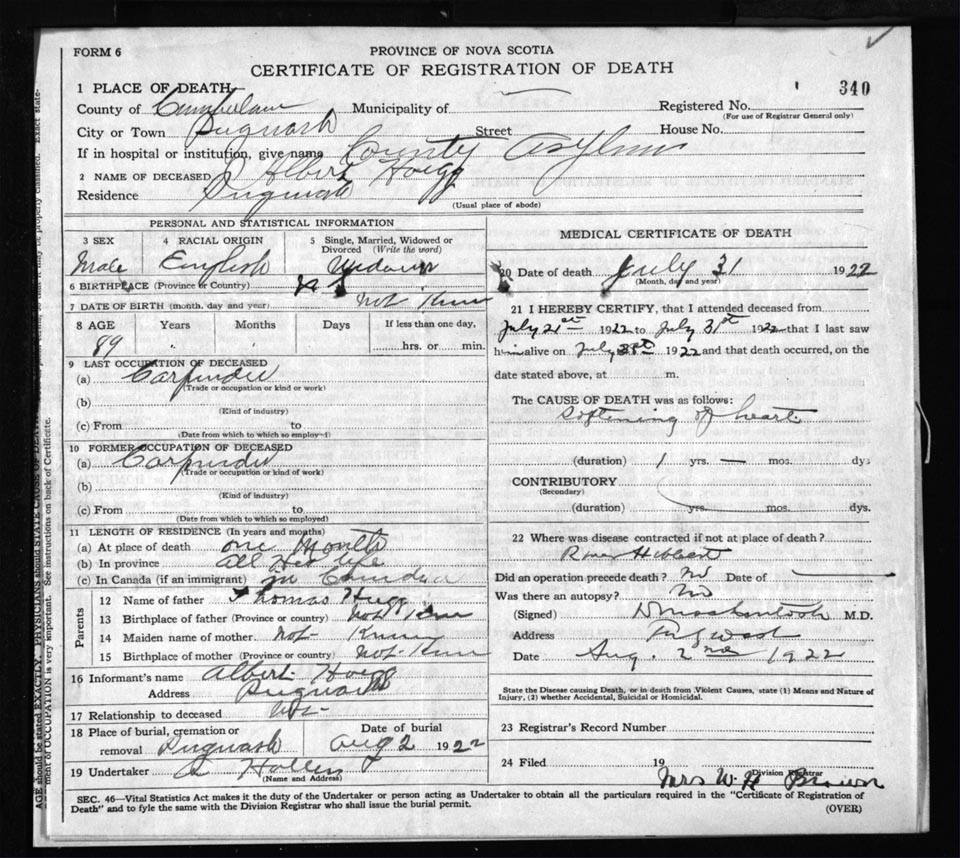 FORM 6
PROVINCE OF NOVA SCOTIA
CERTIFICATE OF REGISTRATION OF DEATH
340
1 PLACE OF DEATH
County of Municipality of Registered No.
(For use of Registrar General only)
City or Town Pugwash Street House No.
If in hospital or institution, give name County Asylum
2 NAME OF DECEASED Albert Hoegg
Residence Pugwash
(Usual place of abode)
PERSONAL AND STATISTICAL INFORMATION
3 SEX
Male
4 RACIAL ORIGIN
English
5 Single, Married, Widowed or Divorced (Write the word)
6 BIRTHPLACE (Province or Country) N S
7 DATE OF BIRTH (month, day and year) Not
8 AGE Years Months Days If less than one day,
89 hrs. or min.
9 LAST OCCUPATION OF DECEASED
(a)
(Trade or occupation or kind or work)
(b)
(Kind of industry)
(c) From to
(Date from which to which so employed)
10 FORMER OCCUPATION OF DECEASED
(a)
(Trade or occupation or kind or work)
(b)
(Kind of industry)
(c) From to
(Date from which to which so employed)
11 LENGTH OF RESIDENCE (In years and months)
(a) At place of death one Month
(b) In province All life
(c) In Canada (if an immigrant) in
Parents
12 Name of father Thomas
13 Birthplace of father (Province or country) Not
14 Maiden name of mother Not
15 Birthplace of mother (Province or country) Not
16 Informant's name Albert Hoegg
Address Pugwash
17 Relationship to deceased
18 Place of burial, cremation or removal Pugwash
Date of burial Aug 2 1922
19 Undertaker
(Name and Address)
MEDICAL CERTIFICATE OF DEATH
20 Date of death July 31 1922
(Month, day and year)
21 I HEREBY CERTIFY, that I attended deceased from
July 21st 1922 to July 31st 1922 that I last saw
him alive on July 1922 and that death occurred, on the
date stated above, at m.
The CAUSE OF DEATH was as follows:
Softening of heart
(duration) 1 yrs. — mos. dys
CONTRIBUTORY
(Secondary)
(duration) yrs. mos. dys.
22 Where was disease contracted if not at place of death?
River Hebbert
Did an operation precede death? No Date of
Was there an autopsy? No
(Signed) M.D.
Address
Date Aug. 2nd 1922
State the Disease causing Death, or in death from Violent Causes, state (1) Means and Nature of
Injury, (2) whether Accidental, Suicidal or Homicidal.
23 Registrar's Record Number
24 Filed 19
Mrs W. H. Brown
Division Registrar
SEC. 46—Vital Statistics Act makes it duty of the Undertaker or person acting as Undertaker to obtain all the particulars required in the "Certificate of Registration of
Death" and to fyle the same with the Division Registrar who shall issue the burial permit.
(OVER)